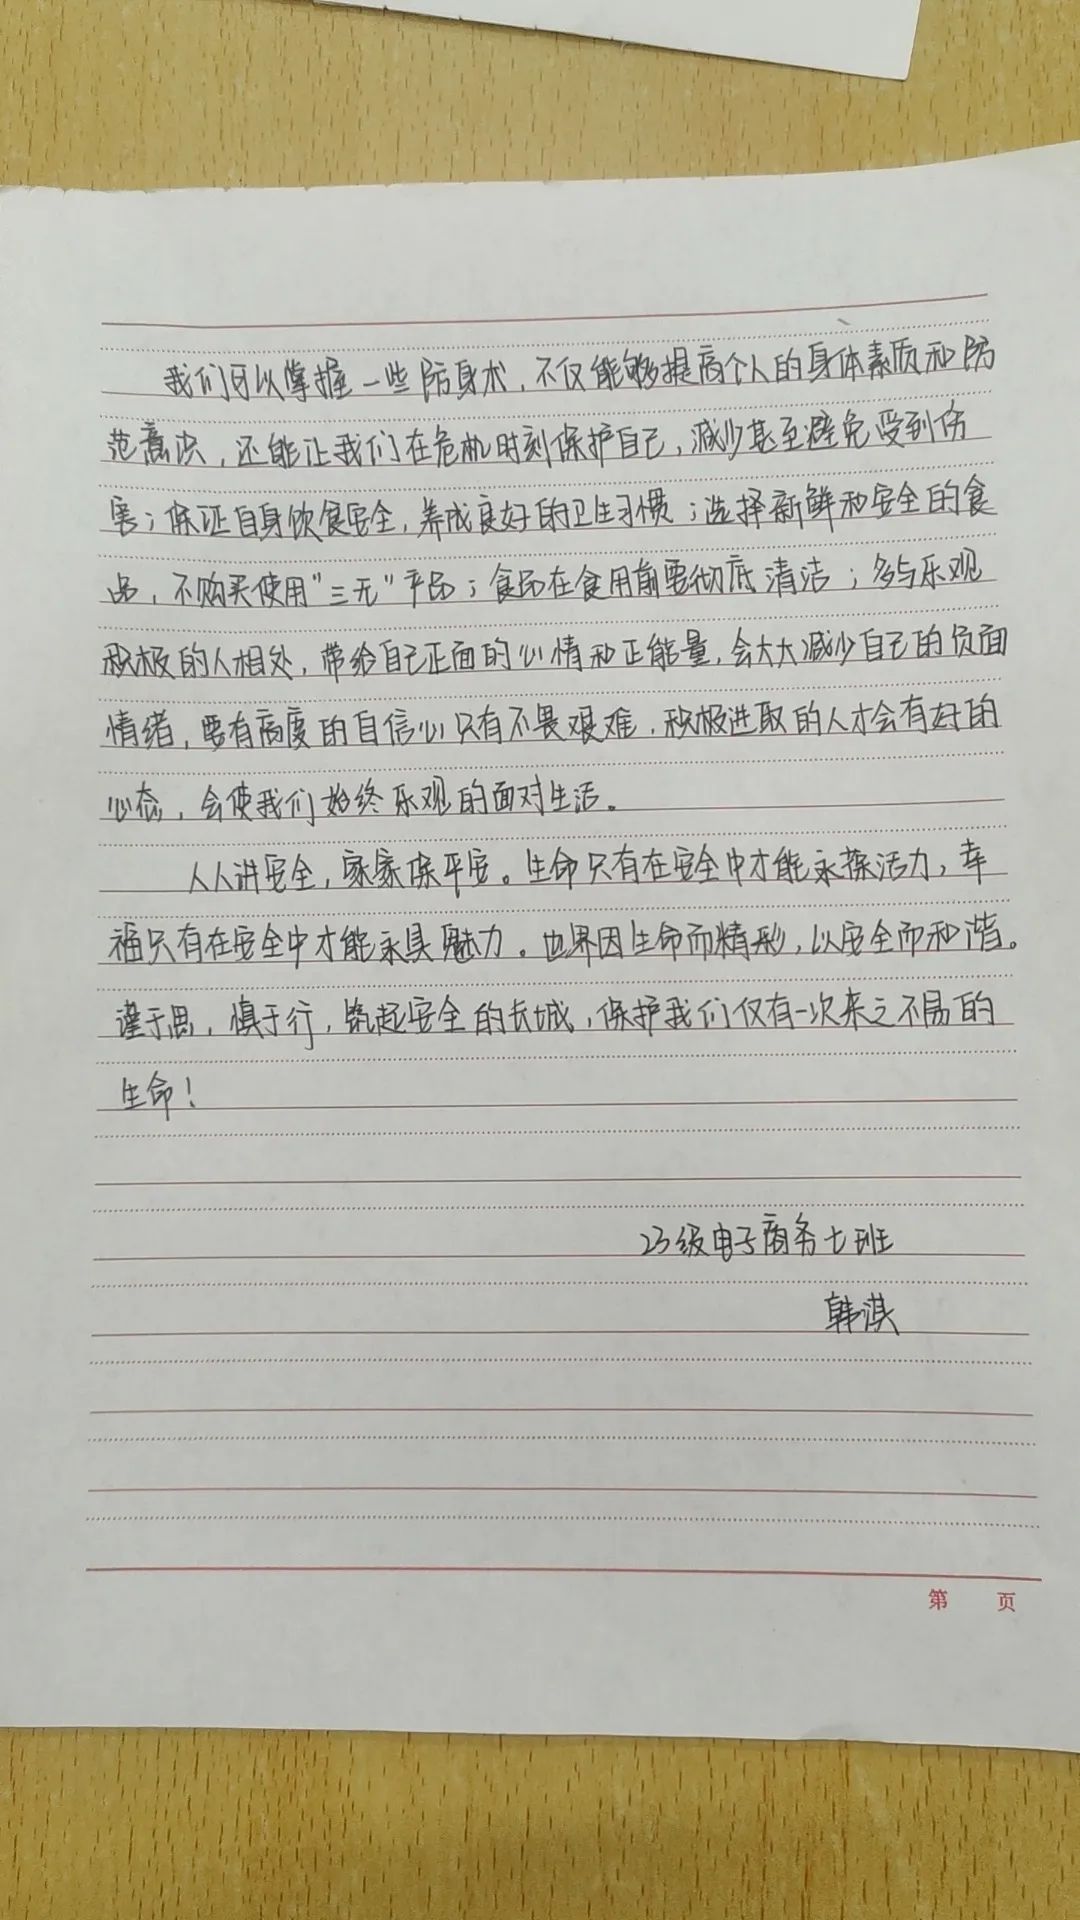 我们可以掌握一些防身术，不仅能够提高个人的身体素质和防
范意识，还能让我们在危机时刻保护自己，减少甚至避免受到伤
害；保证自身饮食安全，养成良好的卫生习惯；选择新鲜和安全的食
品，不购买使用“三无”产品；食品在食用前要彻底清洁；多与乐观
积极的人相处，带给自己正面的心情和正能量，会大大减少自己的负面
情绪，要有高度的自信心只有不畏艰难，积极进取的人才会有好的
心态，会使我们始终乐观的面对生活。
人人讲安全，家家保平安。生命只有在安全中才能永葆活力，幸
福只有在安全中才能永具魅力。世界因生命而精彩，以安全而和谐。
谨于思，慎于行，筑起安全的长城，保护我们仅有一次来之不易的
生命！
23级电子商务七班
韩淇
第 页